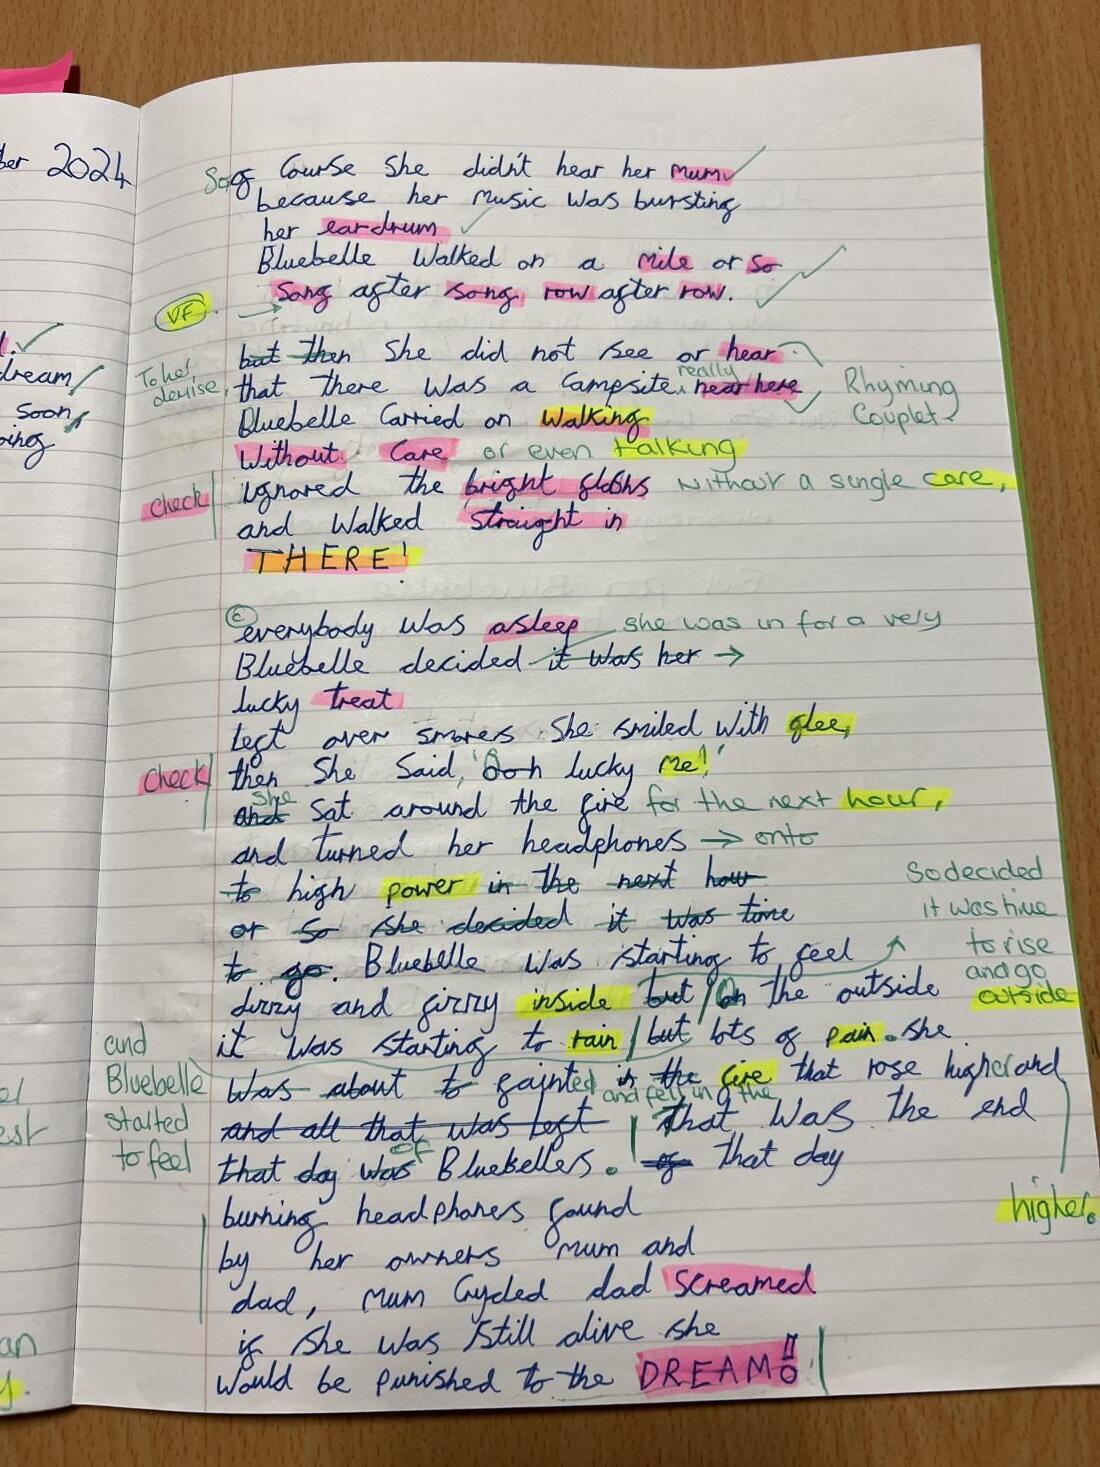 ber 2024
l.
dream
soon
oing
el
est
an
y.
So of Course She didn't hear her mum
because her music was bursting
her eardrum
Bluebelle walked on a mile or so
Song after song, row after row.
VF
but then She did not see or hear
To her demise, that there was a campsite really near here
Rhyming Couplet
Bluebelle Carried on walking
Without Care or even talking
check ignored the bright globhs without a single care,
and walked straight in
THERE!
e everybody was asleep she was in for a very
Bluebelle decided it was her →
lucky treat
Left over smores she smiled with glee,
check then She Said, 'Ooh lucky me!'
and she sat around the fire for the next hour,
and turned her headphones → onto
to high power in the next hour
or so she decided it was time
to go. Bluebelle was starting to feel
So decided it was time to rise and go outside
dizzy and fizzy inside but / On the outside
it was starting to rain / but lots of pain. she
and Bluebelle started to feel
was about to fainted in the fire that rose higher and
and fell in the
and all that was left that was the end
that day was of Bluebelles. of That day
higher.
burning headphones found
by her owners mum and
dad, mum Cryded dad screamed
if she was still alive she
would be punished to the DREAM!!